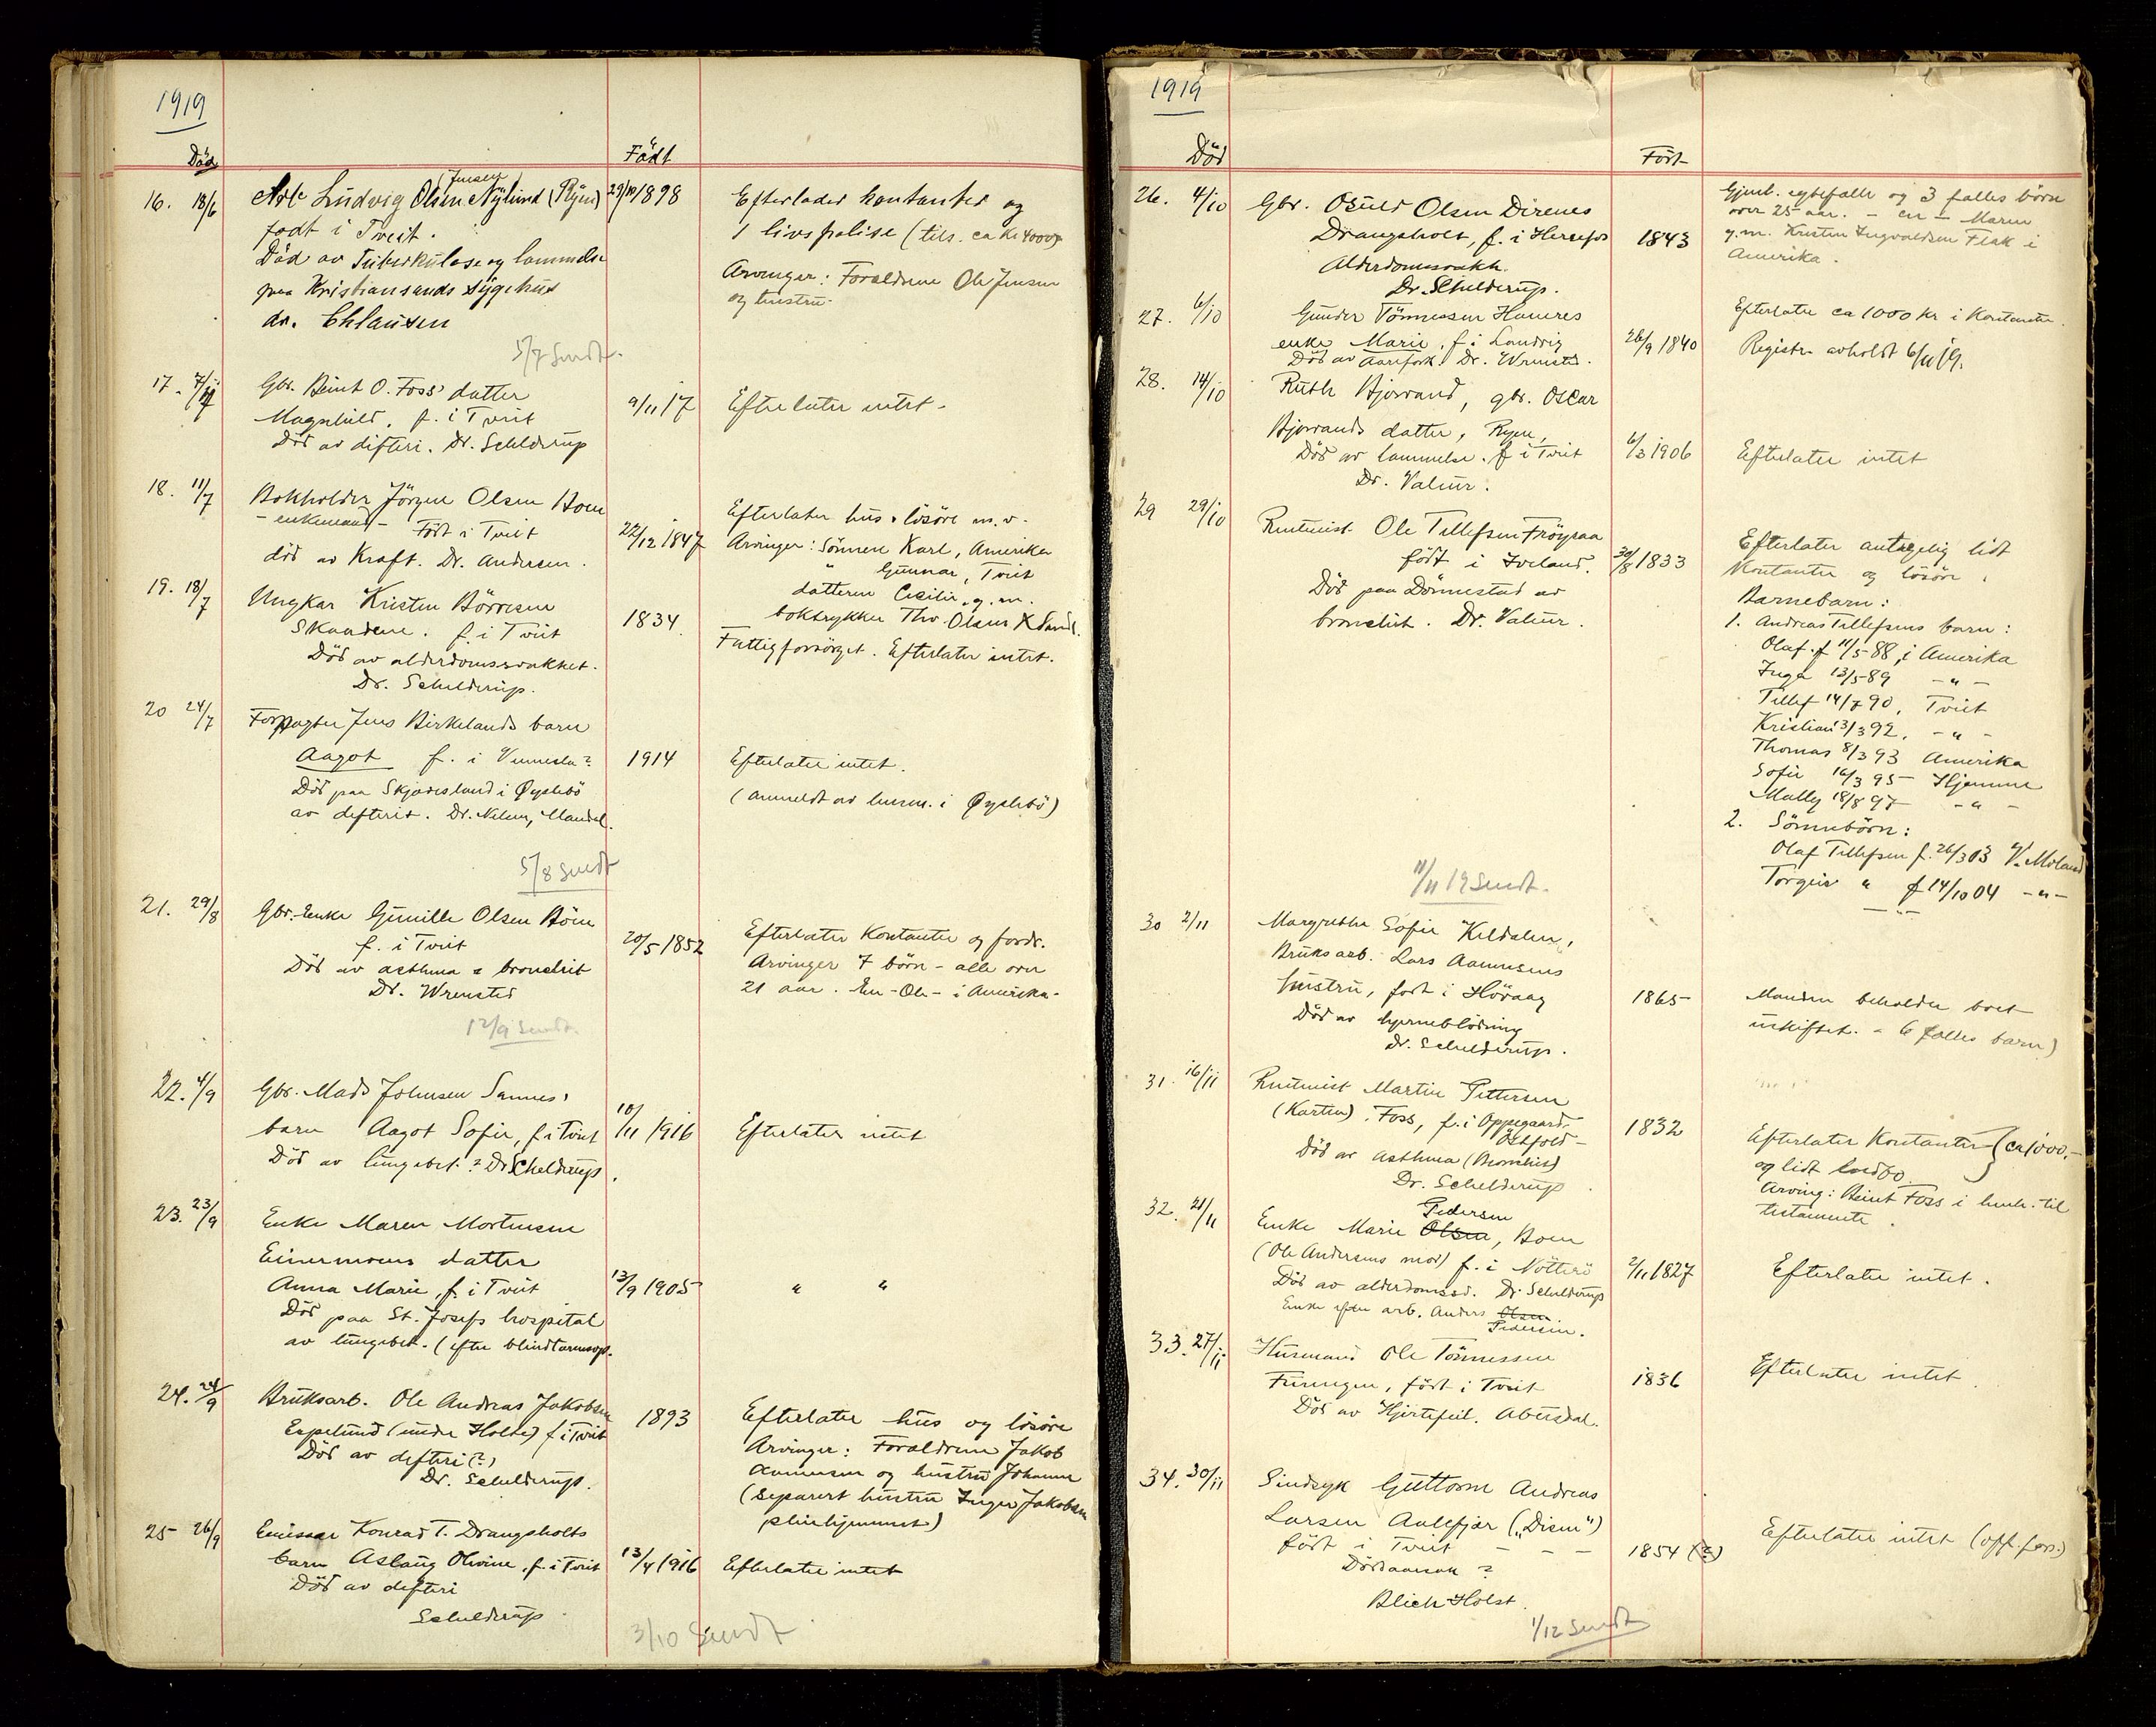 1919
Död
Födt
16. 18/6 Arb. Ludvig Olsen Nylund (Ryen) 29/10 1898
(Jensen)
født i Tveit.
Død av Tuberkulose og lammelse
paa Kristiansands sygehus
dr. Chlausen
Efterlader kontanter og
1 livspolise (tils. ca kr 4000,-
Arvinger: Forældrene Ole Jensen
og hustru.
5/7 Sendt.
17. 7/7 Gbr. Beint O. Foss' datter
Magnhild, f. i Tveit
Död av difteri. Dr. Schelderup
9/11 17
Efterlater intet.
18. 11/7 Bokholder Jörgen Olsen Boen
- enkemand - Född i Tveit
död av Kræft. Dr. Andersen.
22/12 1847
Efterlater hus, lösöre m.v.
Arvinger: Sönnen Karl, Amerika
" Gunnar, Tveit
datteren Cecilie, g.m.
boktrykker Thv. Olsen K Sand.
19. 18/7 Ungkar Kristen Börresen
Skaadene. f. i Tveit
Död av alderdomssvakhet.
Dr. Schelderup.
1834
Fattigforsörget. Efterlater intet.
20 24/7 Forpagter Jens Birkelands barn
Aagot f. i Vennesla?
Död paa Skjævesland i Øyslebö
av defterit. Dr. Nelsen, Mandal.
1914
Efterlater intet.
(anmeldt av lensm. i Øyslebö)
5/8 sendt
21. 29/8 Gbr. Enke Gunille Olsen Böen
f. i Tveit
Död av asthma & bronchit
Dr. Wrensted
20/5 1852
Efterlater Kontanter og fordr.
Arvinger 7 börn - alle over
21 aar. En - Ole - i Amerika.
12/9 sendt.
22. 4/9 Gbr. Mads Johnsen Sannes'
barn Aagot Sofie, f. i Tveit
Död av lungebet.? Dr Schelderup.
10/11 1916
Efterlater intet
23. 23/9 Enke Maren Mortensen
Einermoens datter
Anna Marie, f. i Tveit
Död paa St. Josefs hospital
av lungebet. (efter blindtarmsop.
13/9 1905
" "
24. 24/9 Bruksarb. Ole Andreas Jakobsen
Espelund (under Holte) f. i Tveit
Död av defteri (?)
Dr. Schelderup.
1893
Efterlater hus og lösöre
Arvinger: Forældrene Jakob
Aanensen og hustru Johanne
(Separert hustru Inger Jakobsen
pleiehjemmet)
25 26/9 Emissær Konrad T. Drangsholts
barn Aslaug Olivine, f. i Tveit
Död av defteri
Schelderup
13/4 1916
Efterlater intet
3/10 Sendt
1919
Död
Födt
26. 4/10 Gbr. Osuld Olsen Direnes
Drangsholt, f. i Herefos
Alderdomssvakh.
Dr. Schelderup.
1843
Gjenl. egtefælle og 3 fælles börn
over 25 aar. - en - Maren
g.m. Kristen Ingvaldsen Flak i
Amerika.
27. 6/10 Gunder Tönnessen Hameres
enke Marie, f. i Landvig
Död av Aarefork. Dr. Wrensted.
26/9 1840
Efterlater ca 1000 kr i Kontanter.
Registr. avholdt 6/11 19.
28. 14/10 Ruth Bjorvand, gbr. Oscar
Bjorvands datter, Ryen,
Död av lammelse. f. i Tveit
Dr. Valeur.
6/3 1906
Efterlater intet
29 29/10 Rentenist Ole Tellefsen Fröysaa
född i Iveland.
Död paa Dönnestad av
bronchit. Dr. Valeur.
30/8 1833
Efterlater antagelig lidt
Kontanter og lösöre.
Barnebarn:
1. Andreas Tellefsens barn:
Olaf f. 11/5 88, i Amerika
Inga 13/5 89 - " -
Tellef 14/7 90, Tveit
Kristian 13/3 92, - " -
Thomas 8/3 93 Amerika
Sofie 16/3 95 Hjemme
Mally 18/8 97 - " -
2. Sönnebörn:
Olaf Tellefsen f. 26/3 03 V. Moland
Torgeir " f 14/10 04 - " -
11/11 19 Sendt.
30 2/11 Margrethe Sofie Kildalen,
Bruksarb. Lars Aanensens
hustru, født i Hövaag
Död av hjerneblödning
Dr. Schelderup.
1865
Manden beholder boet
uskiftet. - 6 fælles barn)
31. 16/11 Rentenist Martin Pettersen
(Karten). Foss, f. i Oppegaard
Östfold -
Död av Asthma (Bronchit)
Dr. Schelderup
1832
Efterlater Kontanter } ca 1000.-
og lidt indbo.
Arving: Beint Foss i henh. til
testamente.
32. 21/11 Enke Marie Olsen, Boen
Pedersen
(Ole Andersens mor) f. i Nötterö
Död av alderdomssv. Dr. Schelderup
Enke efter arb. Anders Olsen
Pedersen.
2/11 1827
Efterlater intet.
33. 27/11 Husmand Ole Tönnessen
Furengen, född i Tveit
Död av Hjertefeil. Abusdal.
1836
Efterlater intet.
34. 30/11 Sindsyk Guttorm Andreas
Larsen Aalefjær („Disen")
född i Tveit - - -
Dödsaarsak ?
Blich-Holst.
1854 (?)
Efterlater intet (off. fors.)
1/12 sendt